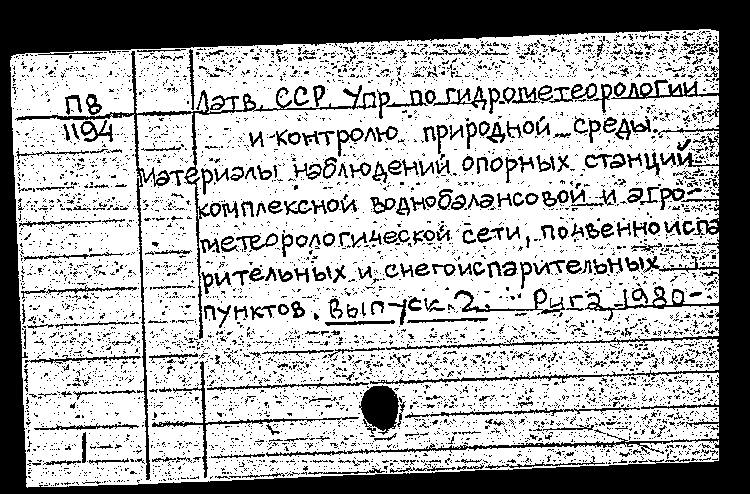 ПВ
1194
Латв. ССР. Упр. по гидрометеорологии
и контролю природной среды.
материалы наблюдений опорных станций
комплексной воднобалансовой и агро-
метеорологической сети, почвенноиспа
рительных и снегоиспарительных
пунктов. Выпуск. 2. Рига, 1980-